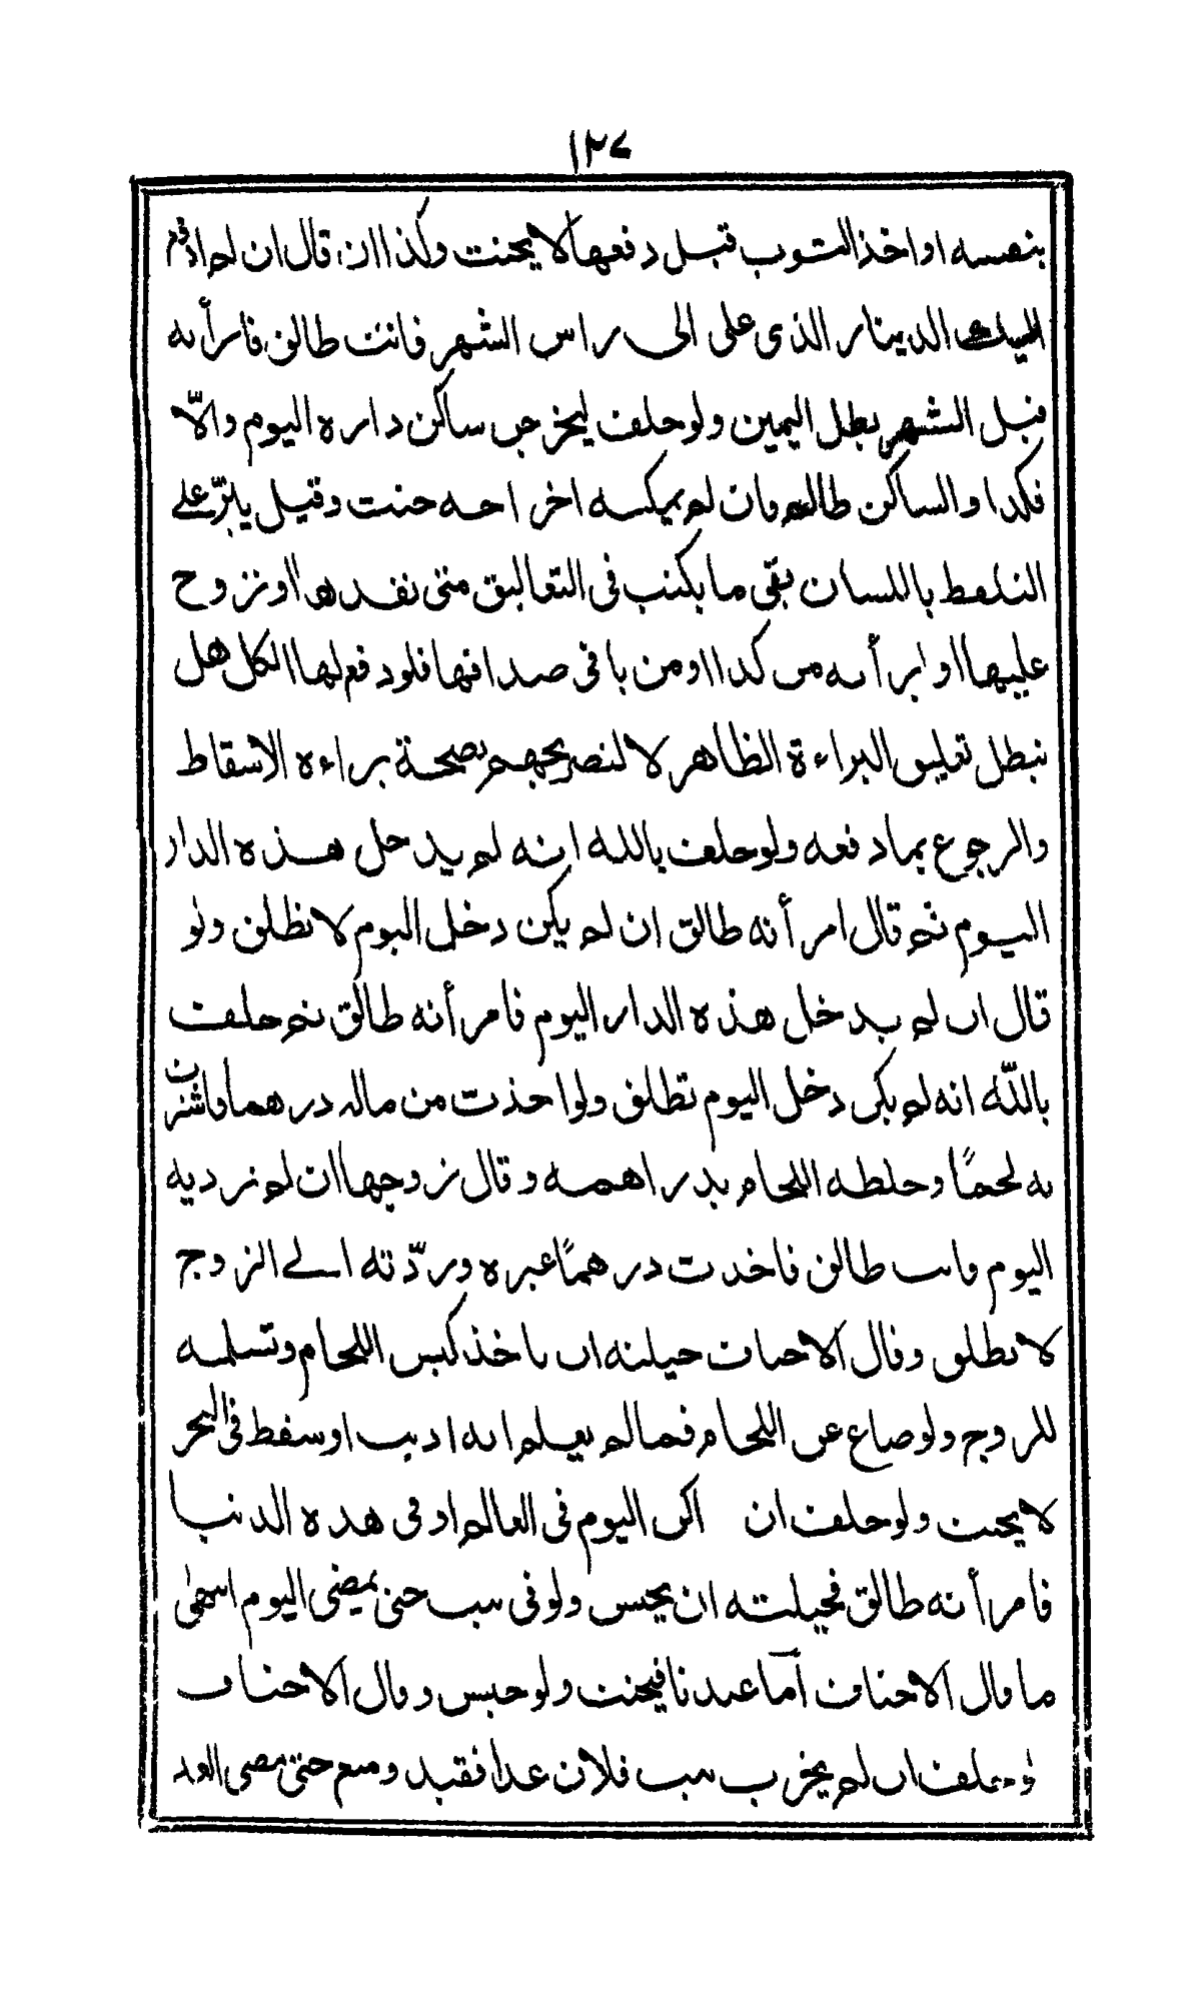 ١٢٧
بنفسه او اخذ الثوب قبل دفعها لا يحنث وكذا ان قال ان لم ادفع
اليك الدينار الذى على الى راس الشهر فانت طالق فابرأته
قبل الشهر بطل اليمين ولو حلف ليخرجن ساكن داره اليوم والا
فكذا والساكن ظالم فان لم يمكنه اخراجه حنث وقيل يلزم على
التلفظ باللسان بقى ما يكتب فى التعاليق متى نقدها او تزوج
عليها او ابرأته من كذا او من باقى صداقها فلو دفع لها الكل هل
تبطل تعليق البراءة الظاهر لا لتصريحهم بصحة براءة الاسقاط
والرجوع بما دفعه ولو حلف بالله انه لم يدخل هذه الدار
اليوم ثم قال امرأته طالق ان لم يكن دخل اليوم لا تطلق ولو
قال ان لم يدخل هذه الدار اليوم فامرأته طالق ثم حلف
بالله انه لم يكن دخل اليوم تطلق ولو اخذت من ماله درهما فاشترت
به لحمًا وخلطه اللحام بدراهمه وقال زوجها ان لم ترديه
اليوم فانت طالق فاخذت درهمًا غيره وردّته الى الزوج
لا تطلق وقال الاحناف حيلته ان ياخذ كيس اللحام وتسلمه
للزوج ولو ضاع عن اللحام فما لم يعلم انه اذيب او سقط فى البحر
لا يحنث ولو حلف ان اكن اليوم فى العالم او فى هذه الدنيا
فامرأته طالق فحيلته ان يحبس ولو فى بيت حتى يمضى اليوم انتهى
ما قال الاحناف اما عندنا فيحنث ولو حبس وقال الاحناف
لو حلف ان لم يخرب بيت فلان غدا فقيد ومنع حتى مضى الغد